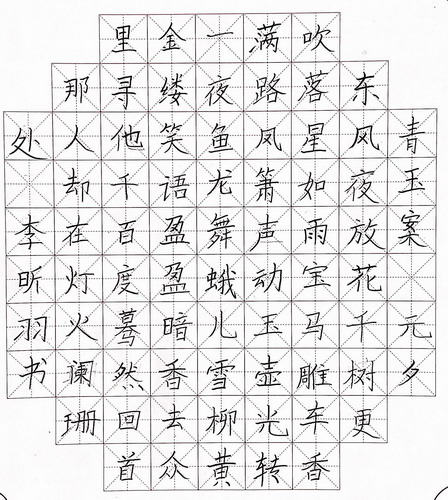 青玉案 元夕
东风夜放花千树更
吹落星如雨宝马雕车香
满路凤箫声动玉壶光转
一夜鱼龙舞蛾儿雪柳黄
金缕笑语盈盈暗香去众
里寻他千百度蓦然回首
那人却在灯火澜珊
处 李昕羽书